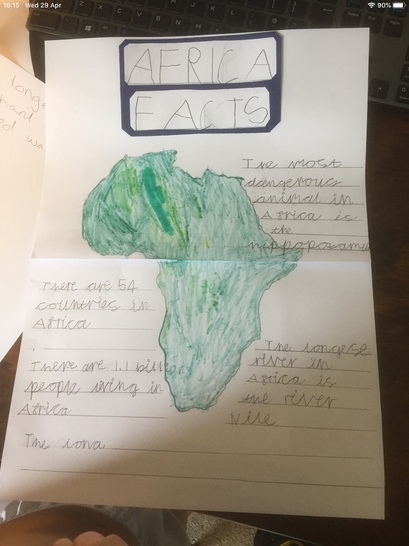 16:15 Wed 29 Apr
90%
AFRICA
FACTS
The most
dangerous
animal in
Africa is
the
There are 54
countries in
Africa
There are 1.1 billion
people living in
Africa
The longest
river in
Africa is
the river
Nile
The
long
hard